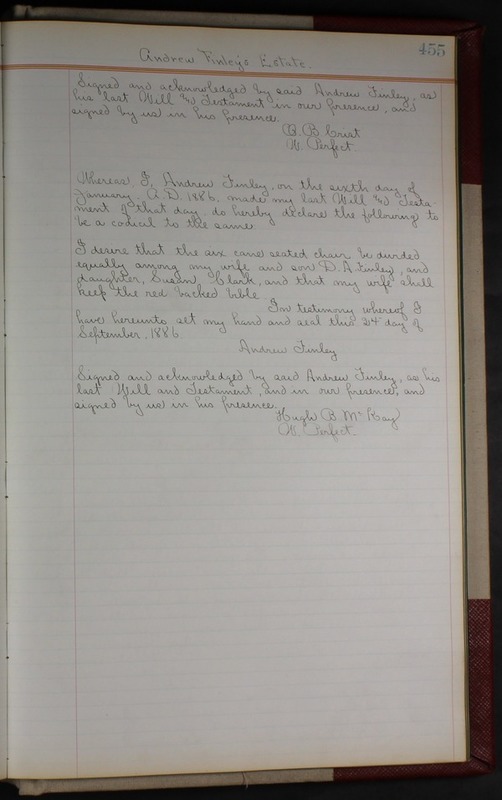 455
Andrew Finley's Estate.
Signed and acknowledged by said Andrew Finley, as
his last Will & Testament in our presence, and
signed by us in his presence.
Q. B. Crist
W. Perfect.
Whereas, I, Andrew Finley, on the sixth day of
January, A.D. 1886, made my last Will & Testa-
ment of that day do hereby declare the following to
be a codicil to the same.
I desire that the six cane seated chair be divided
equally among my wife and son D. A. Finley, and
daughter, Susan Clark, and that my wife shall
keep the red backed bible.
In testimony whereof I
have hereunto set my hand and seal this 24" day of
September, 1886.
Andrew Finley
Signed and acknowledged by said Andrew Finley, as his
last Will and Testament, and in our presence, and
signed by us in his presence.
Hugh B. McKay
W. Perfect.